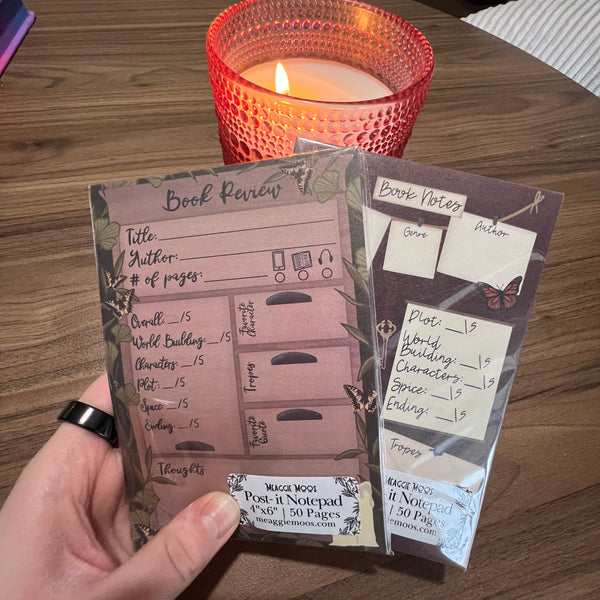 Book Review
Title:
Author:
# of pages:
Overall: __/5
World Building: __/5
Characters: __/5
Plot: __/5
Spice: __/5
Ending: __/5
Favorite
Character
Tropes
Favorite
Quote
Thoughts
Meaggie Moos
Post-it Notepad
4"x6" | 50 Pages
meaggiemoos.com
Book Notes
Genre
Author
Plot: __/5
World
Building: __/5
Characters: __/5
Spice: __/5
Ending: __/5
Tropes
Meaggie Moos
it Notepad
| 50 Pages
moos.com